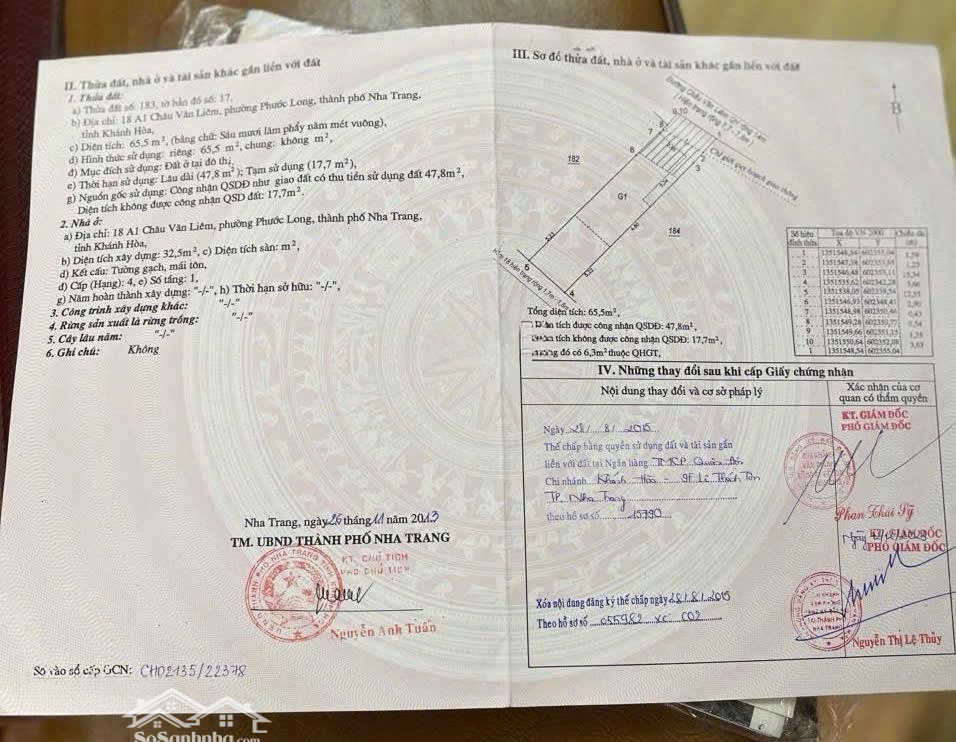 II. Thửa đất, nhà ở và tài sản khác gắn liền với đất
1. Thửa đất:
a) Thửa đất số: 183, tờ bản đồ số: 17,
b) Địa chỉ: 18 A1 Châu Văn Liêm, phường Phước Long, thành phố Nha Trang,
tỉnh Khánh Hòa,
c) Diện tích: 65,5 m², (bằng chữ: Sáu mươi lăm phẩy năm mét vuông),
d) Hình thức sử dụng: riêng: 65,5 m², chung: không m²,
đ) Mục đích sử dụng: Đất ở tại đô thị,
e) Thời hạn sử dụng: Lâu dài (47,8 m²); Tạm sử dụng (17,7 m²),
g) Nguồn gốc sử dụng: Công nhận QSDĐ như giao đất có thu tiền sử dụng đất 47,8m²,
Diện tích không được công nhận QSD đất: 17,7m².
2. Nhà ở:
a) Địa chỉ: 18 A1 Châu Văn Liêm, phường Phước Long, thành phố Nha Trang,
tỉnh Khánh Hòa,
b) Diện tích xây dựng: 32,5m², c) Diện tích sàn: m²,
d) Kết cấu: Tường gạch, mái tôn,
đ) Cấp (Hạng): 4, e) Số tầng: 1,
g) Năm hoàn thành xây dựng: "-/-", h) Thời hạn sở hữu: "-/-",
3. Công trình xây dựng khác: "-/-"
4. Rừng sản xuất là rừng trồng: "-/-"
5. Cây lâu năm: "-/-"
6. Ghi chú: Không
Nha Trang, ngày 26 tháng 11 năm 2013
TM. UBND THÀNH PHỐ NHA TRANG
KT. CHỦ TỊCH
PHÓ CHỦ TỊCH
Nguyễn Anh Tuấn
Số vào sổ cấp GCN: CH02135/22378
III. Sơ đồ thửa đất, nhà ở và tài sản khác gắn liền với đất
B
Chỉ giới quy hoạch giao thông
9,10
8
7
6
2
3
182
G1
184
5
4
Tổng diện tích: 65,5m²,
Diện tích được công nhận QSDĐ: 47,8m²,
Diện tích không được công nhận QSDĐ: 17,7m²,
trong đó có 6,3m² thuộc QHGT,
Số hiệu đỉnh thửa
Tọa độ VN 2000
X Y
1 1351548,54 602355,04
2 1351547,38
3 1351546,48
4 1351535,62 602342,28
5 1351538,05 602339,54
6 1351546,93 602348,41
7 1351548,98 602350,46
8 1351549,28 602350,77
9 1351549,66
10 1351550,64 602352,08
1 1351548,54 602355,04
IV. Những thay đổi sau khi cấp Giấy chứng nhận
Nội dung thay đổi và cơ sở pháp lý
Xác nhận của cơ quan có thẩm quyền
Ngày 28/8/2015
Thế chấp bằng quyền sử dụng đất và tài sản gắn
liền với đất tại Ngân hàng TMCP Quân Đội
Chi nhánh Khánh Hòa - Lê Thánh Tôn
TP. Nha Trang
theo hồ sơ số 15790
KT. GIÁM ĐỐC
PHÓ GIÁM ĐỐC
Phan Thái Sỹ
KT. GIÁM ĐỐC
PHÓ GIÁM ĐỐC
Xóa nội dung đăng ký thế chấp ngày 28/8/2015
Theo hồ sơ số 055982 XC 002
Nguyễn Thị Lệ Thủy
SoSanhnha.com